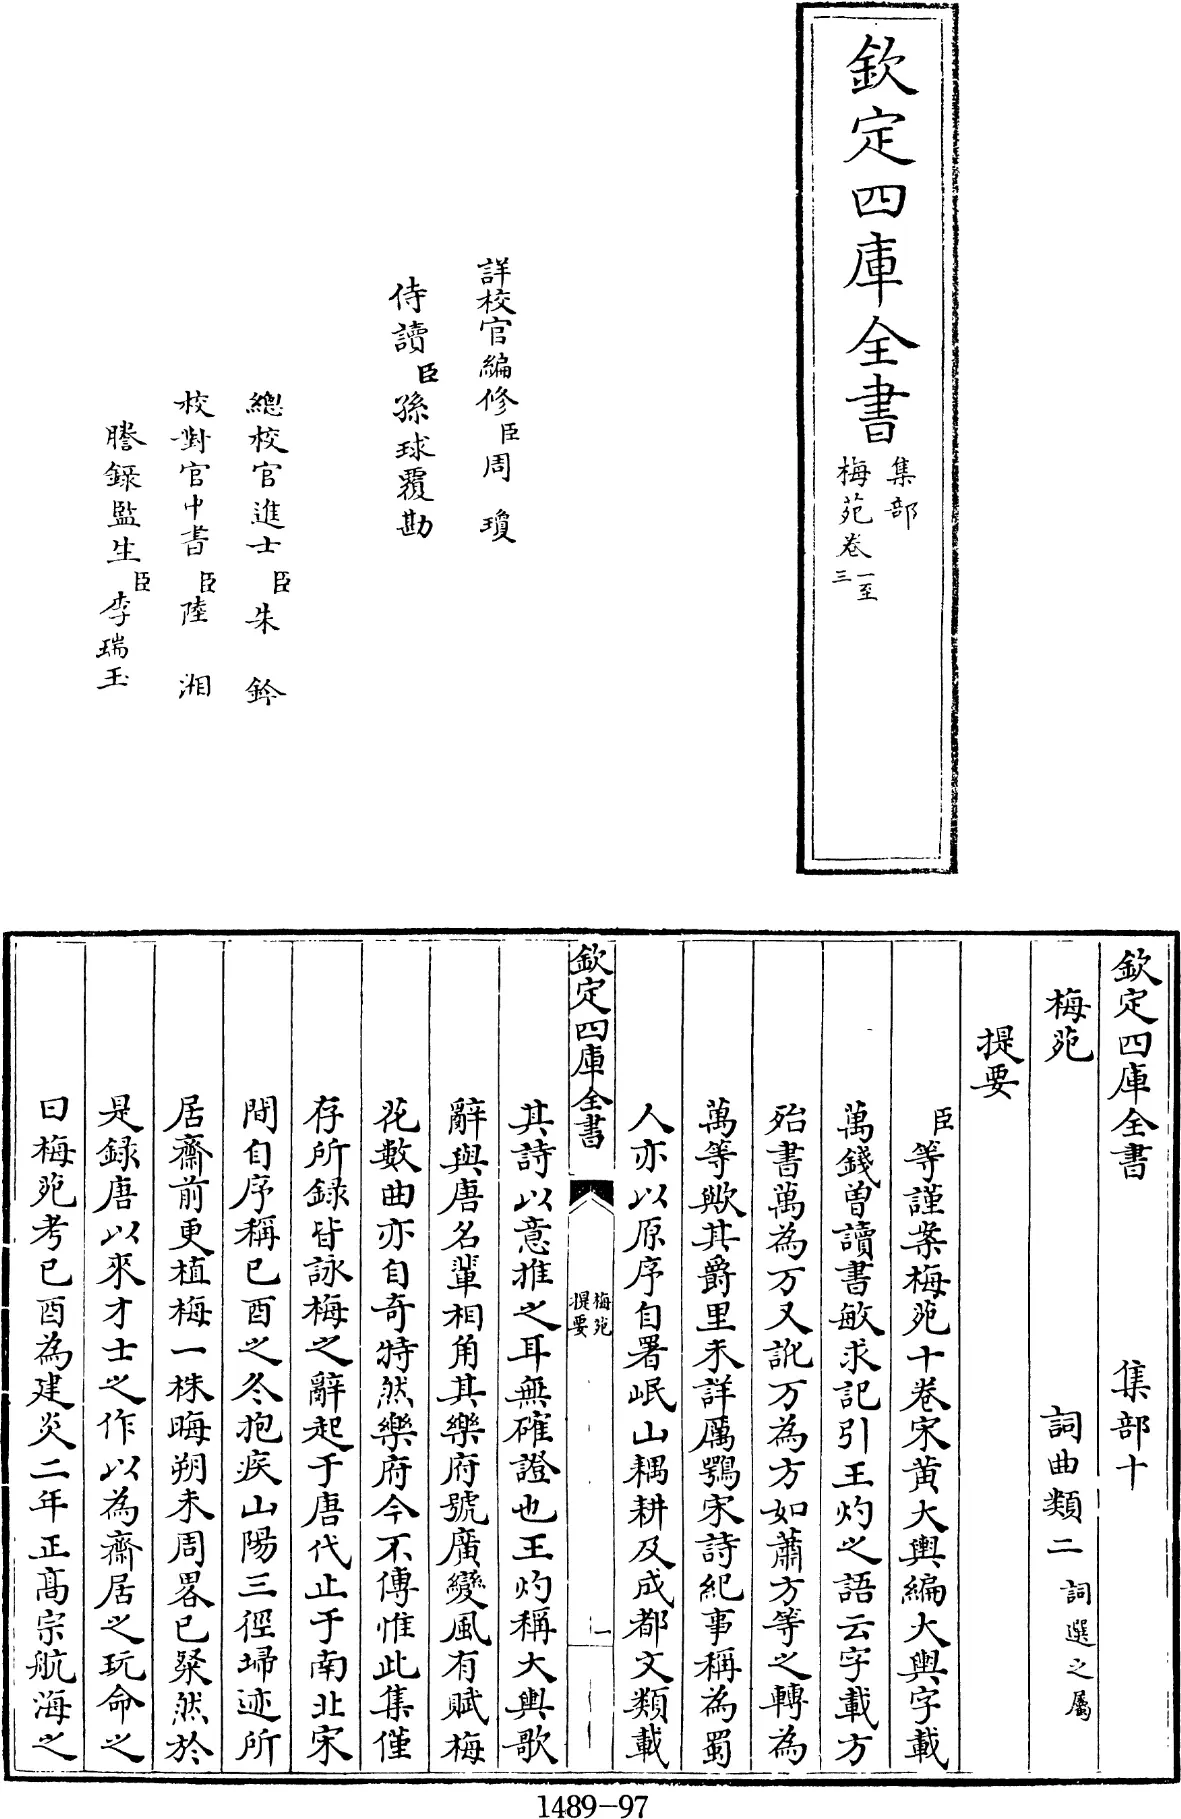 欽定四庫全書
集部
梅苑卷一至三
詳校官編修臣周瓊
侍讀臣孫球覆勘
總校官進士臣朱鈐
校對官中書臣陸湘
謄錄監生臣李瑞玉
欽定四庫全書　集部十
梅苑　詞曲類二詞選之屬
提要
臣等謹案梅苑十卷宋黃大輿編大輿字載
萬錢曽讀書敏求記引王灼之語云字載方
殆書萬為万又訛万為方如蕭方等之轉為
萬等歟其爵里未詳厲鶚宋詩紀事稱為蜀
人亦以原序自署岷山耦耕及成都文類載
欽定四庫全書
梅苑
提要
一
其詩以意推之耳無確證也王灼稱大輿歌
辭與唐名輩相角其樂府號廣變風有賦梅
花數曲亦自奇特然樂府今不傳惟此集僅
存所録皆詠梅之辭起于唐代止于南北宋
間自序稱已酉之冬抱疾山陽三徑埽迹所
居齋前更植梅一株晦朔未周畧已粲然於
是録唐以來才士之作以為齋居之玩命之
曰梅苑考已酉為建炎二年正髙宗航海之
1489-97